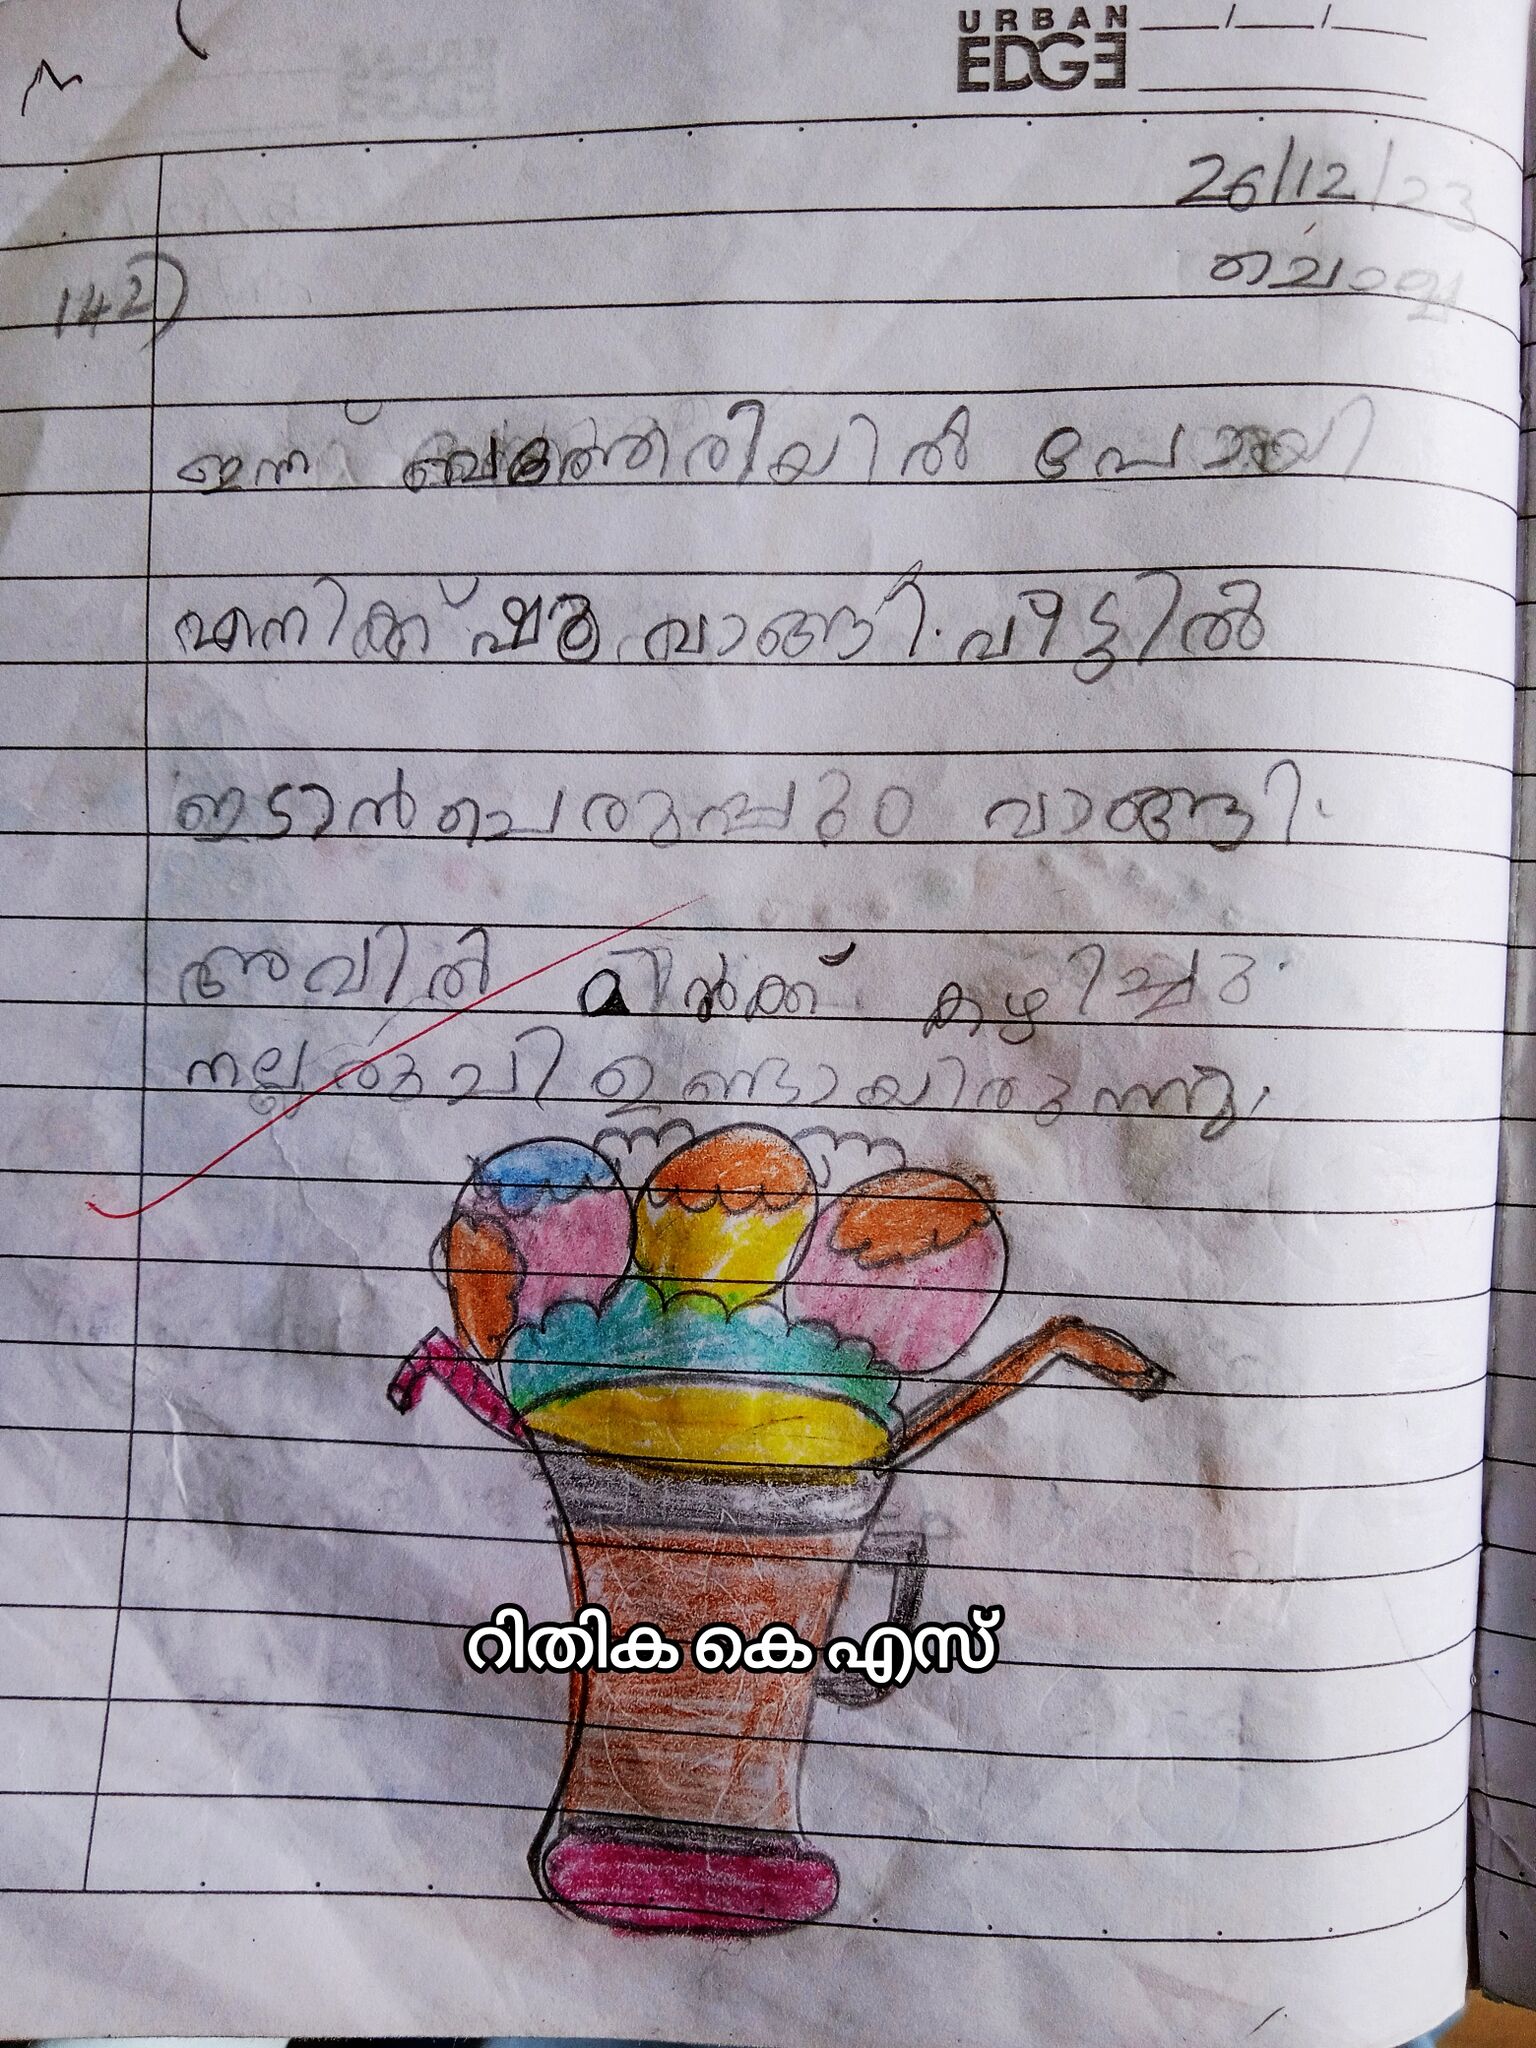 URBAN
EDGE
26/12/23
ചൊവ്വ
142)
ഇന്ന് ബത്തേരിയിൽ പോയി
എനിക്ക് ഷൂ വാങ്ങി. വീട്ടിൽ
ഇടാൻ ചെരുപ്പും വാങ്ങി.
അവിൽ മിൽക്ക് കഴിച്ചു.
നല്ല രുചി ഉണ്ടായിരുന്നു.
റിതിക കെ എസ്